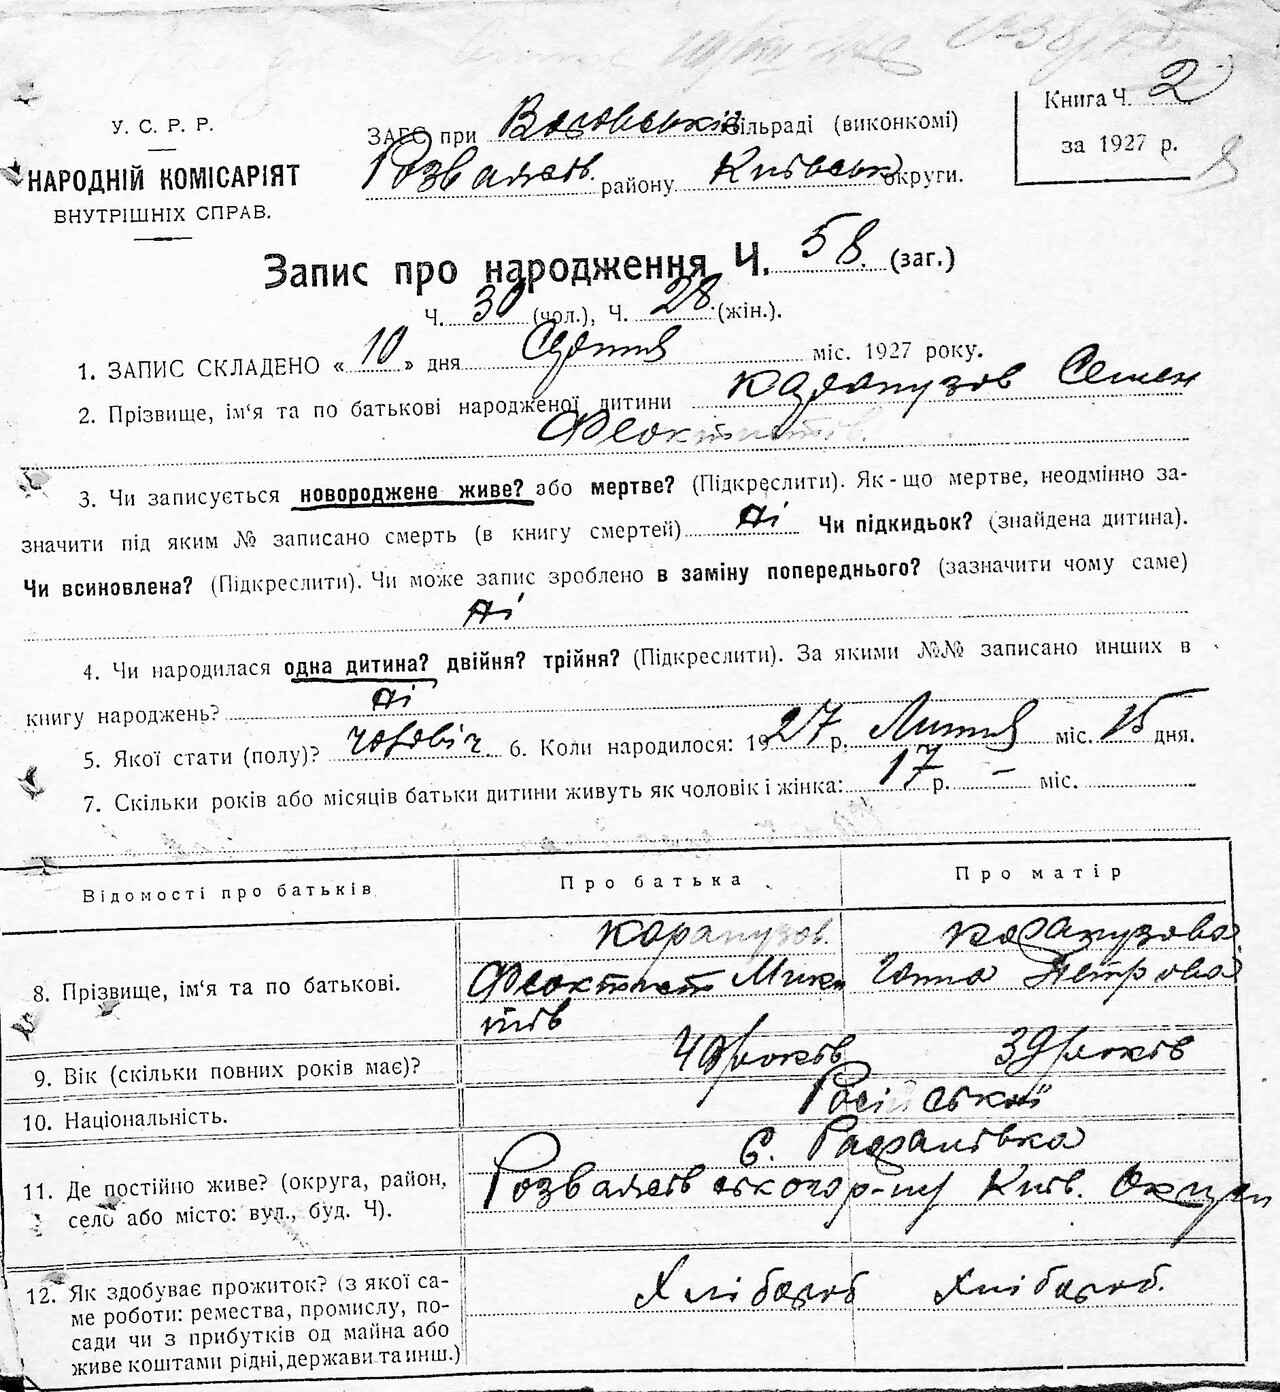 У. С. Р. Р.
НАРОДНІЙ КОМІСАРІЯТ
ВНУТРІШНІХ СПРАВ.
ЗАГС при сільраді (виконкомі)
Розважів. району Київськ округи.
Книга Ч. 2
за 1927 р.
Запис про народження Ч. 58. (заг.)
Ч. 30 (чол.), Ч. 28. (жін.).
1. ЗАПИС СКЛАДЕНО « 10 » дня міс. 1927 року.
2. Прізвище, ім'я та по батькові народженої дитини Карапузов Семен
Феоктистів.
3. Чи записується новороджене живе? або мертве? (Підкреслити). Як-що мертве, неодмінно за-
значити під яким № записано смерть (в книгу смертей) Ні Чи підкидьок? (знайдена дитина).
Чи всиновлена? (Підкреслити). Чи може запис зроблено в заміну попереднього? (зазначити чому саме)
Ні
4. Чи народилася одна дитина? двійня? трійня? (Підкреслити). За якими №№ записано инших в
книгу народжень? Ні
5. Якої стати (полу)? чоловіч. 6. Коли народилося: 1927 р. Лютня міс. 15 дня.
7. Скільки років або місяців батьки дитини живуть як чоловік і жінка: 17 р. – міс.
Відомості про батьків
Про батька
Про матір
8. Прізвище, ім'я та по батькові.
Карапузов.
Феоктист Мики
тів
Карапузова.
Ганна Петрова
9. Вік (скільки повних років має)?
років
39 років
10. Національність.
Російської
11. Де постійно живе? (округа, район,
село або місто: вул., буд. Ч).
С. Рафалівка
Розважівського р-ну Київ. Округи
12. Як здобуває прожиток? (з якої са-
ме роботи: ремества, промислу, по-
сади чи з прибутків од майна або
живе коштами рідні, держави та инш.)
Хлібороб
Хлібороб.